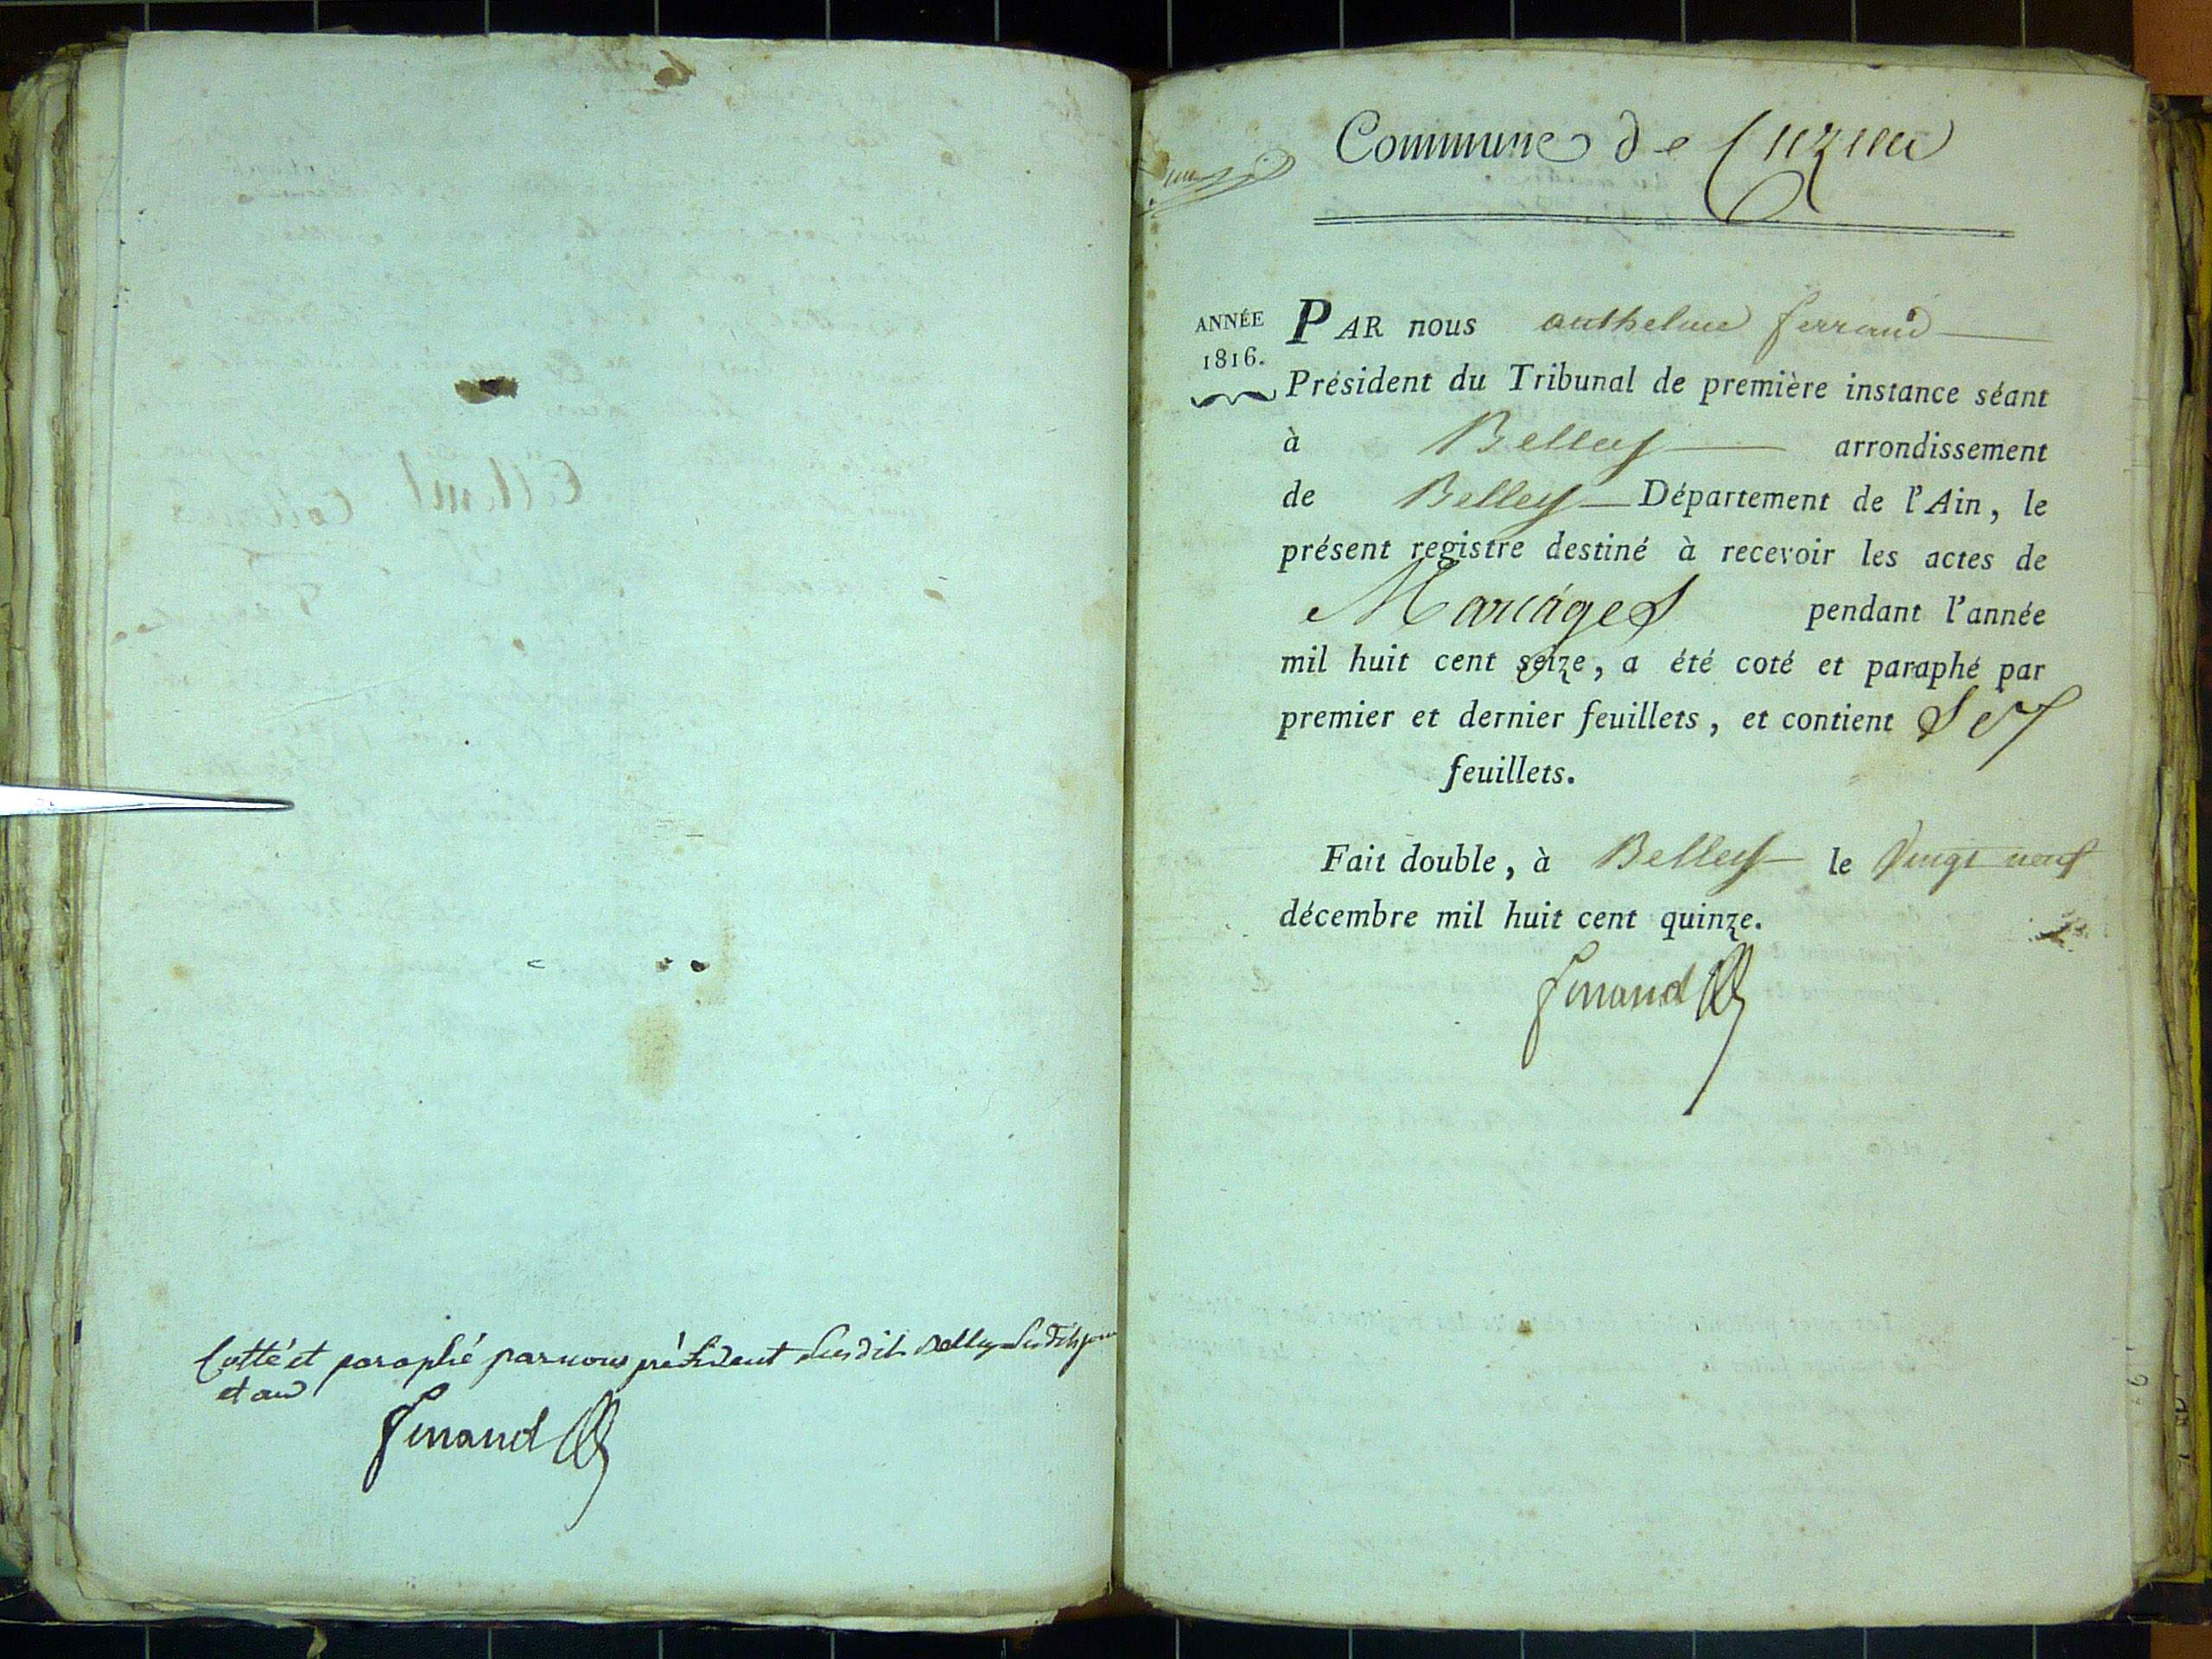 Cotté et paraphé par nous président susdit Belley susdits jour
et an
ferrand
Commune de Cuzieu
ANNÉE
1816.
PAR nous anthelme ferrand
Président du Tribunal de première instance séant
à Belley arrondissement
de Belley Département de l'Ain, le
présent registre destiné à recevoir les actes de
Mariages pendant l'année
mil huit cent seize, a été coté et paraphé par
premier et dernier feuillets, et contient
feuillets.
Fait double, à Belley le vingt neuf
décembre mil huit cent quinze.
ferrand